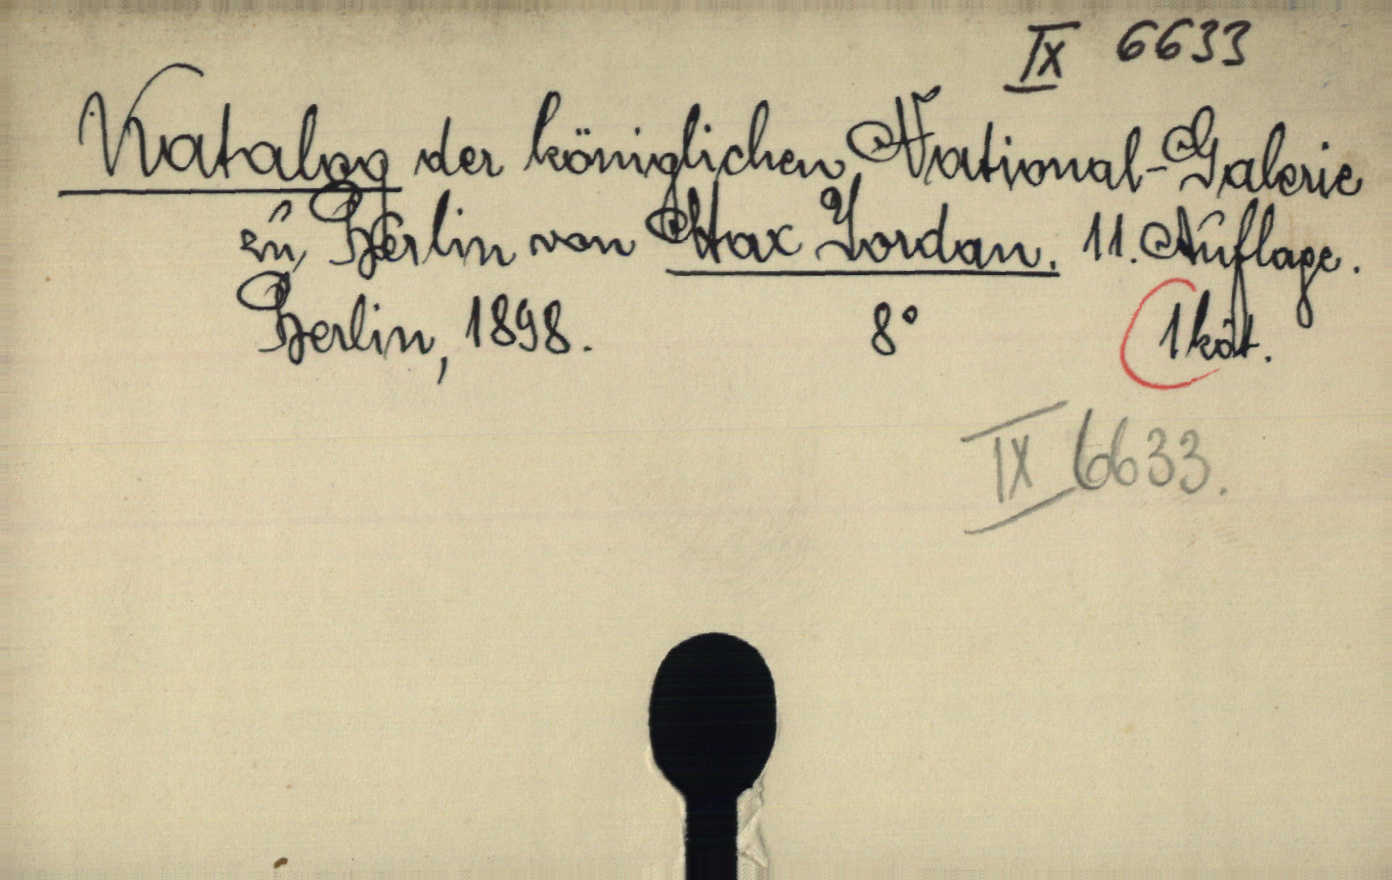 IX 6633
Katalog der königlichen National-Galerie
zu Berlin von Max Jordan. 11. Auflage.
Berlin, 1898. 8° 1 köt.
IX 6633.